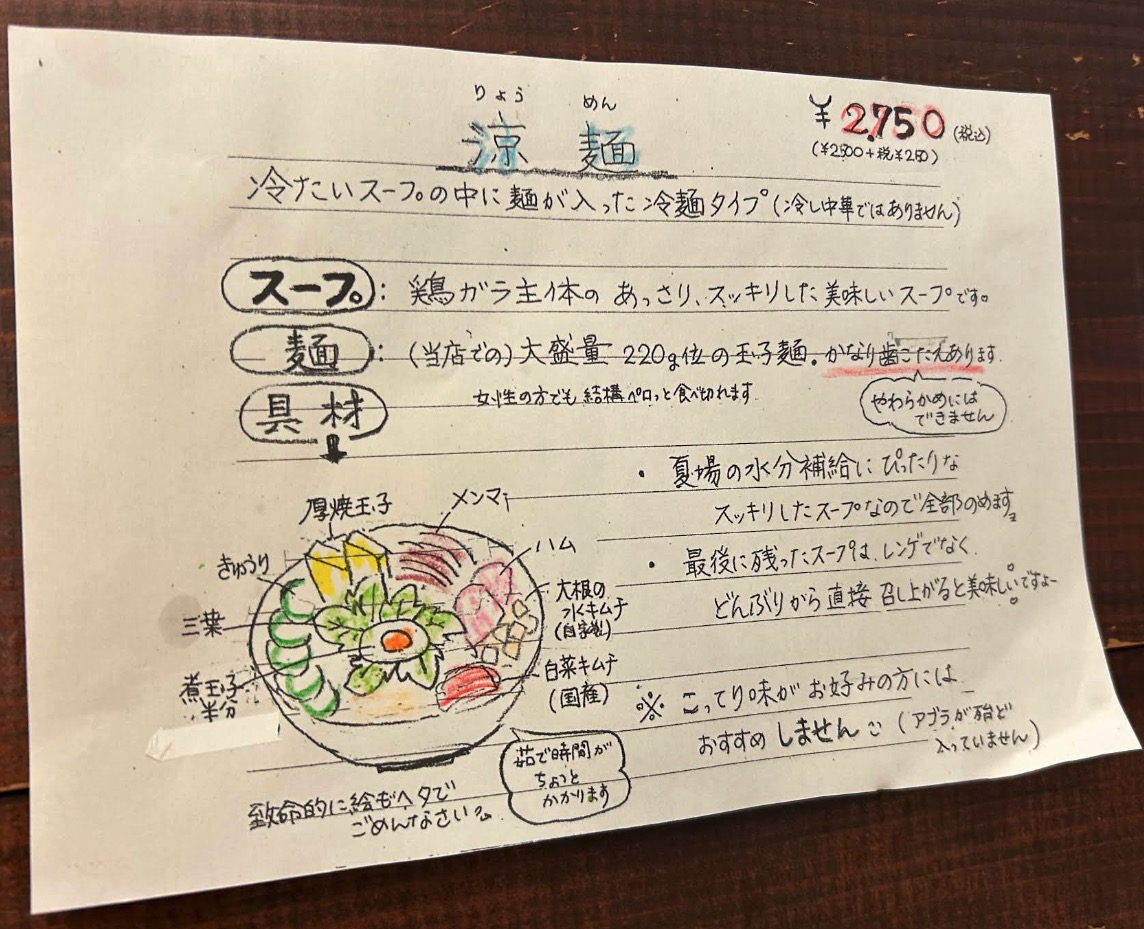 りょう めん
涼 麺
¥2,750(税込)
(¥2500+税¥250)
冷たいスープの中に麺が入った冷麺タイプ(冷し中華ではありません)
スープ: 鶏ガラ主体の あっさり、スッキリした美味しいスープです。
麺: (当店での)大盛量 220g位の玉子麺。かなり歯ごたえあります。
女性の方でも結構ペロっと食べ切れます
やわらかめには
できません
具材
・夏場の水分補給にぴったりな
スッキリしたスープなので全部のめます
・最後に残ったスープは、レンゲでなく
どんぶりから直接召し上がると美味しいですよー
※こってり味がお好みの方には
おすすめしません (アブラが殆ど
入っていません)
厚焼玉子
メンマ
きゅうり
ハム
三葉
大根の
水キムチ
(自家製)
煮玉子
半分
白菜キムチ
(国産)
茹で時間が
ちょっと
かかります
致命的に絵もヘタで
ごめんなさい